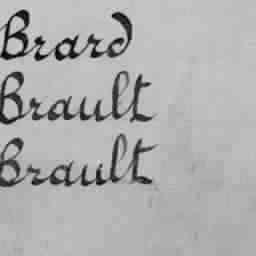 Brard
Brault
Brault